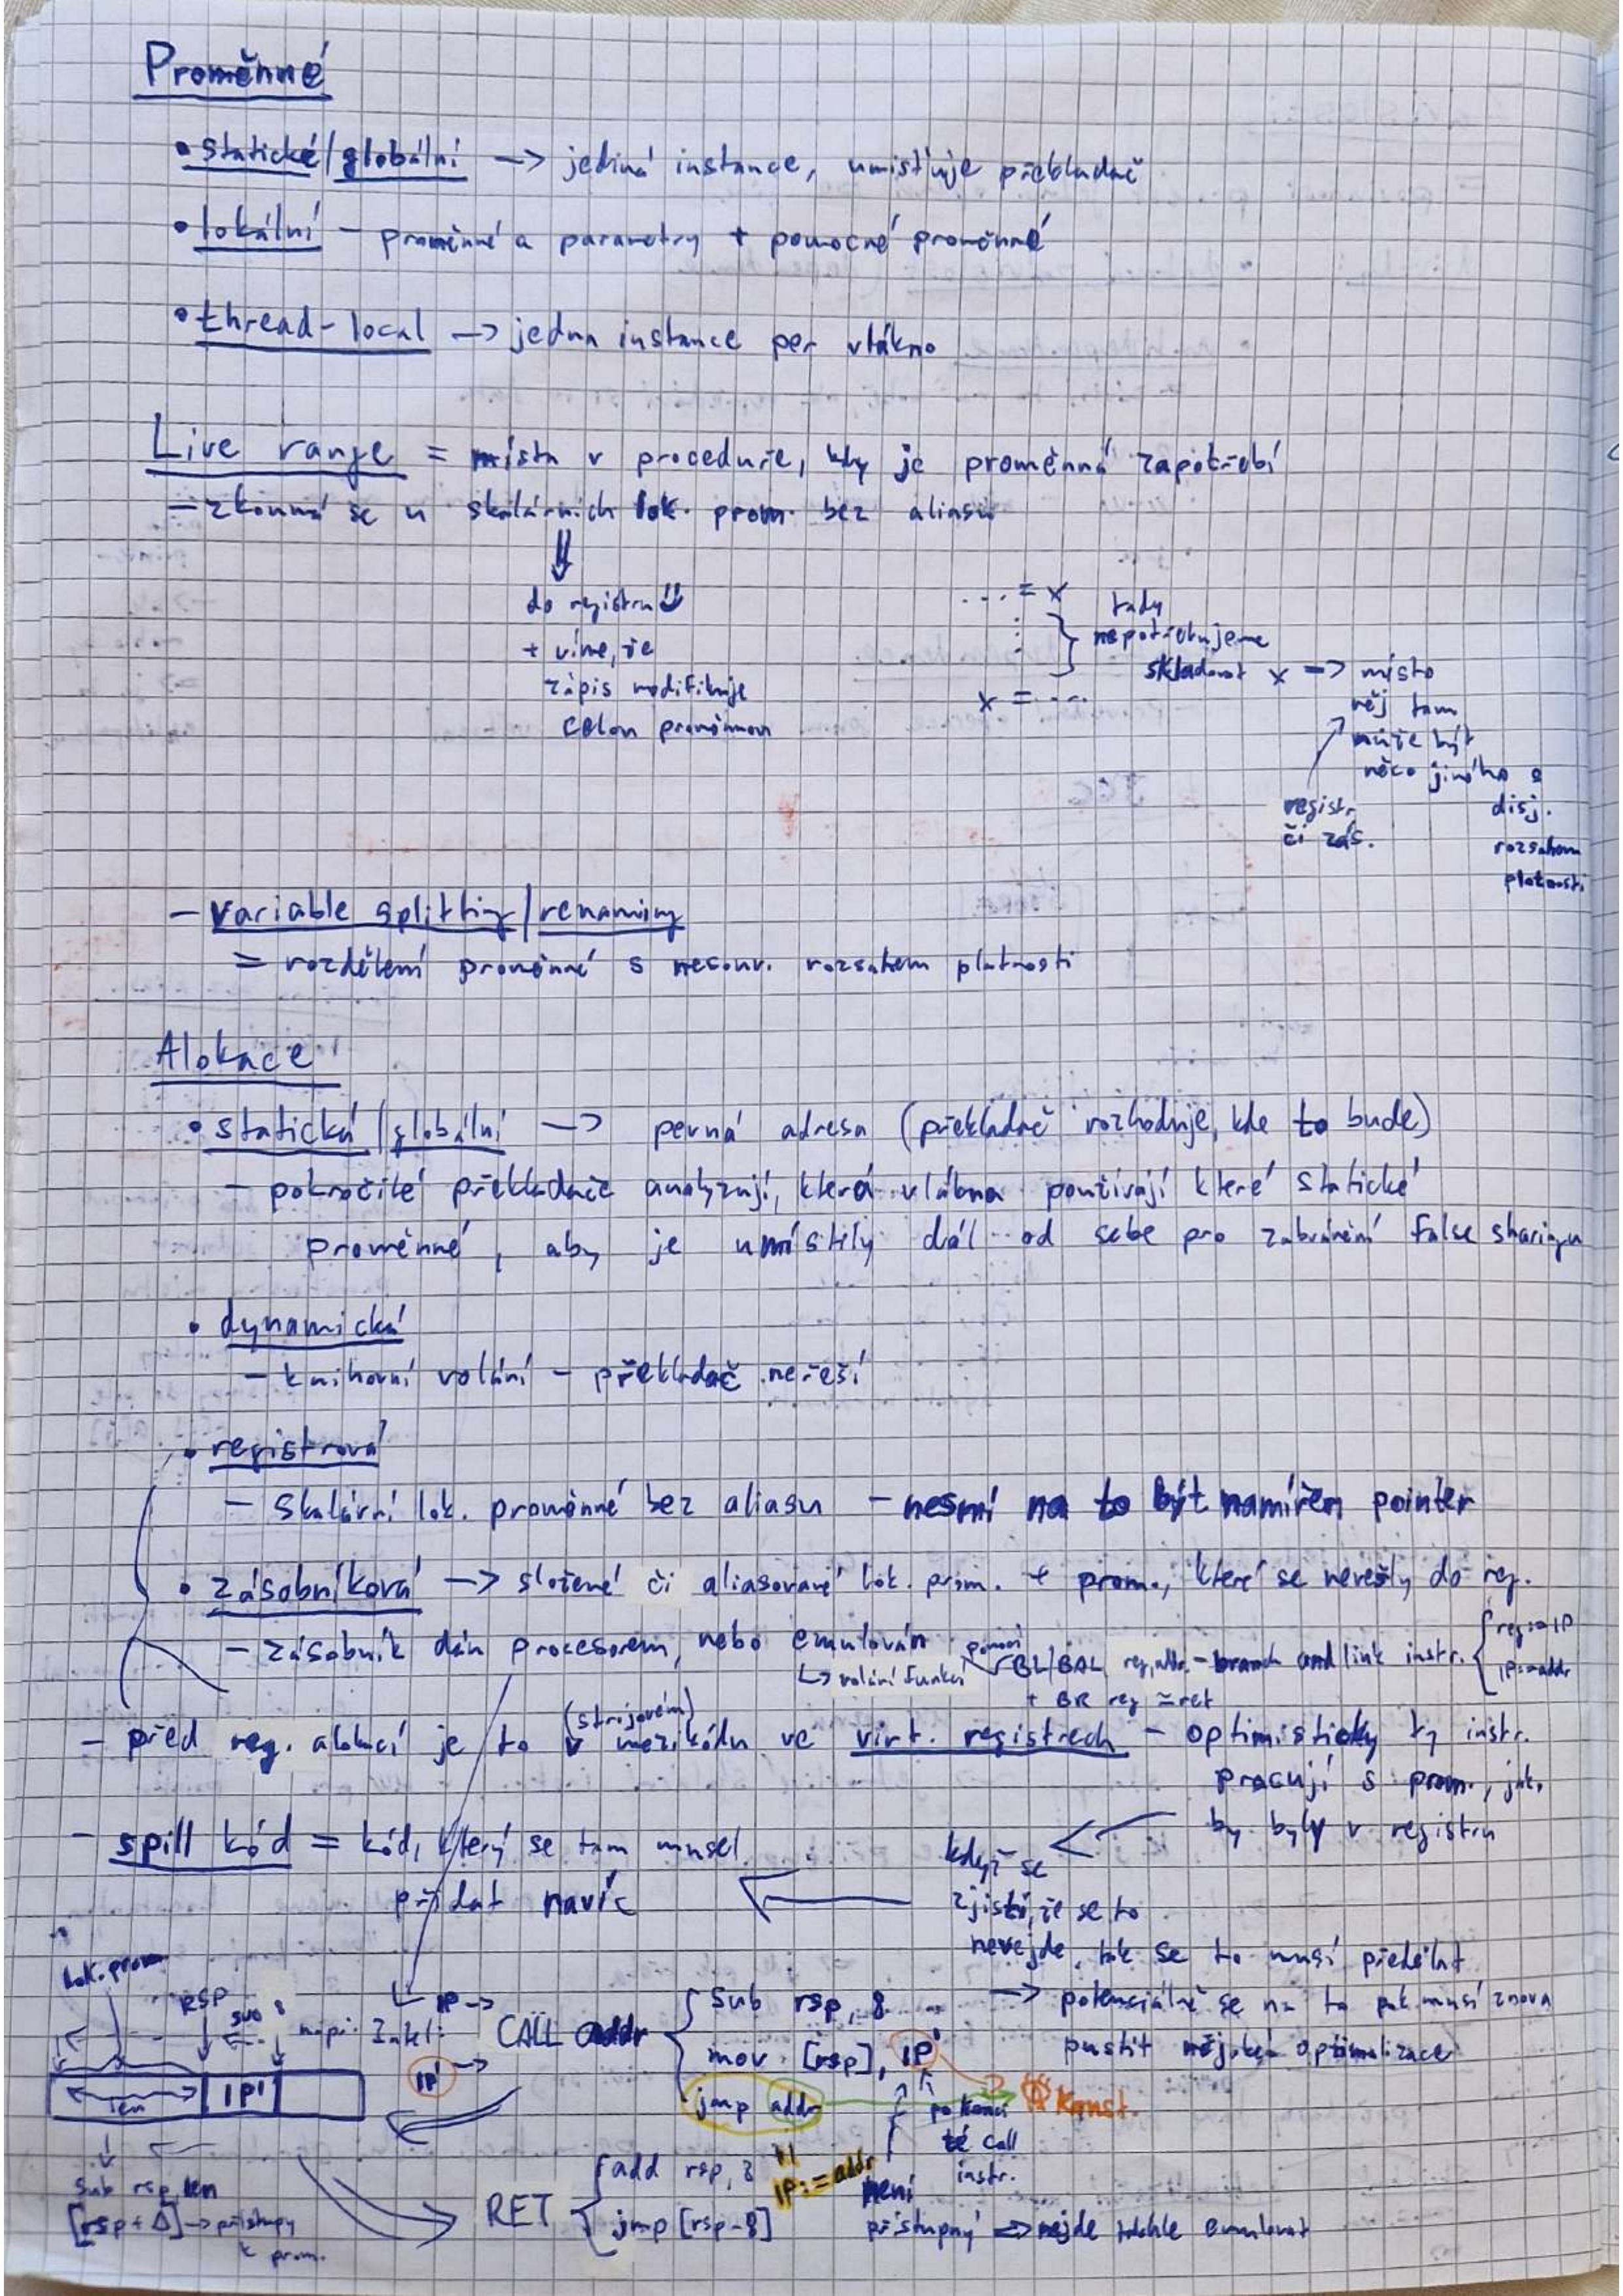 Proměnné
• statické/globální -> jediná instance, umisťuje překladač
• lokální - proměnné a parametry + pomocné proměnné
• thread-local -> jedna instance per vlákno
Live range = místa v proceduře, kdy je proměnná zapotřebí
- zkoumá se u skalárních lok. prom. bez aliasů
⇓
do registru
+ víme, že
zápis modifikuje
celou proměnnou
.... = x
x = ....
tady
nepotřebujeme
skladovat x => místo
něj tam
může být
něco jiného s
disj.
rozsahem
platnosti
registr
či zás.
- variable splitting/renaming
= rozdělení proměnné s nesouv. rozsahem platnosti
Alokace
• statická/globální -> pevná adresa (překladač rozhoduje, kde to bude)
- pokročilé překladače analyzují, která vlákna používají které statické
proměnné, aby je umístily dál od sebe pro zabránění false sharingu
• dynamická
- knihovní volání - překladač neřeší
• registrová
- skalární lok. proměnné bez aliasu - nesmí na to být namířen pointer
• zásobníková -> složené či aliasované lok. prom. + prom., které se nevešly do reg.
- zásobník dán procesorem, nebo emulován
↳ volání funkcí
pomocí BL/BAL reg, addr. - branch and link instr. { reg:=IP
IP:=addr
+ BR reg ≃ ret
- před reg. alokací je to v (strojovém) mezikódu ve virt. registrech - optimisticky ty instr.
pracují s prom., jak.
by byly v registru
- spill kód = kód, který se tam musel
přidat navíc
když se
zjistí, že se to
nevejde, tak se to musí předělat
-> potenciálně se na to pak musí znova
pustit nějaké optimalizace
lok. prom
RSP
sub 8
len
IP'
sub rsp, len
[rsp + Δ] -> přístupy
k prom.
např. Intel:
IP ->
CALL addr { sub rsp, 8
mov [rsp], IP'
jmp addr
IP' ->
Konst.
IP:=addr
po konci
té call
instr.
není
přístupný => nejde takhle emulovat
RET { add rsp, 8
jmp [rsp-8]